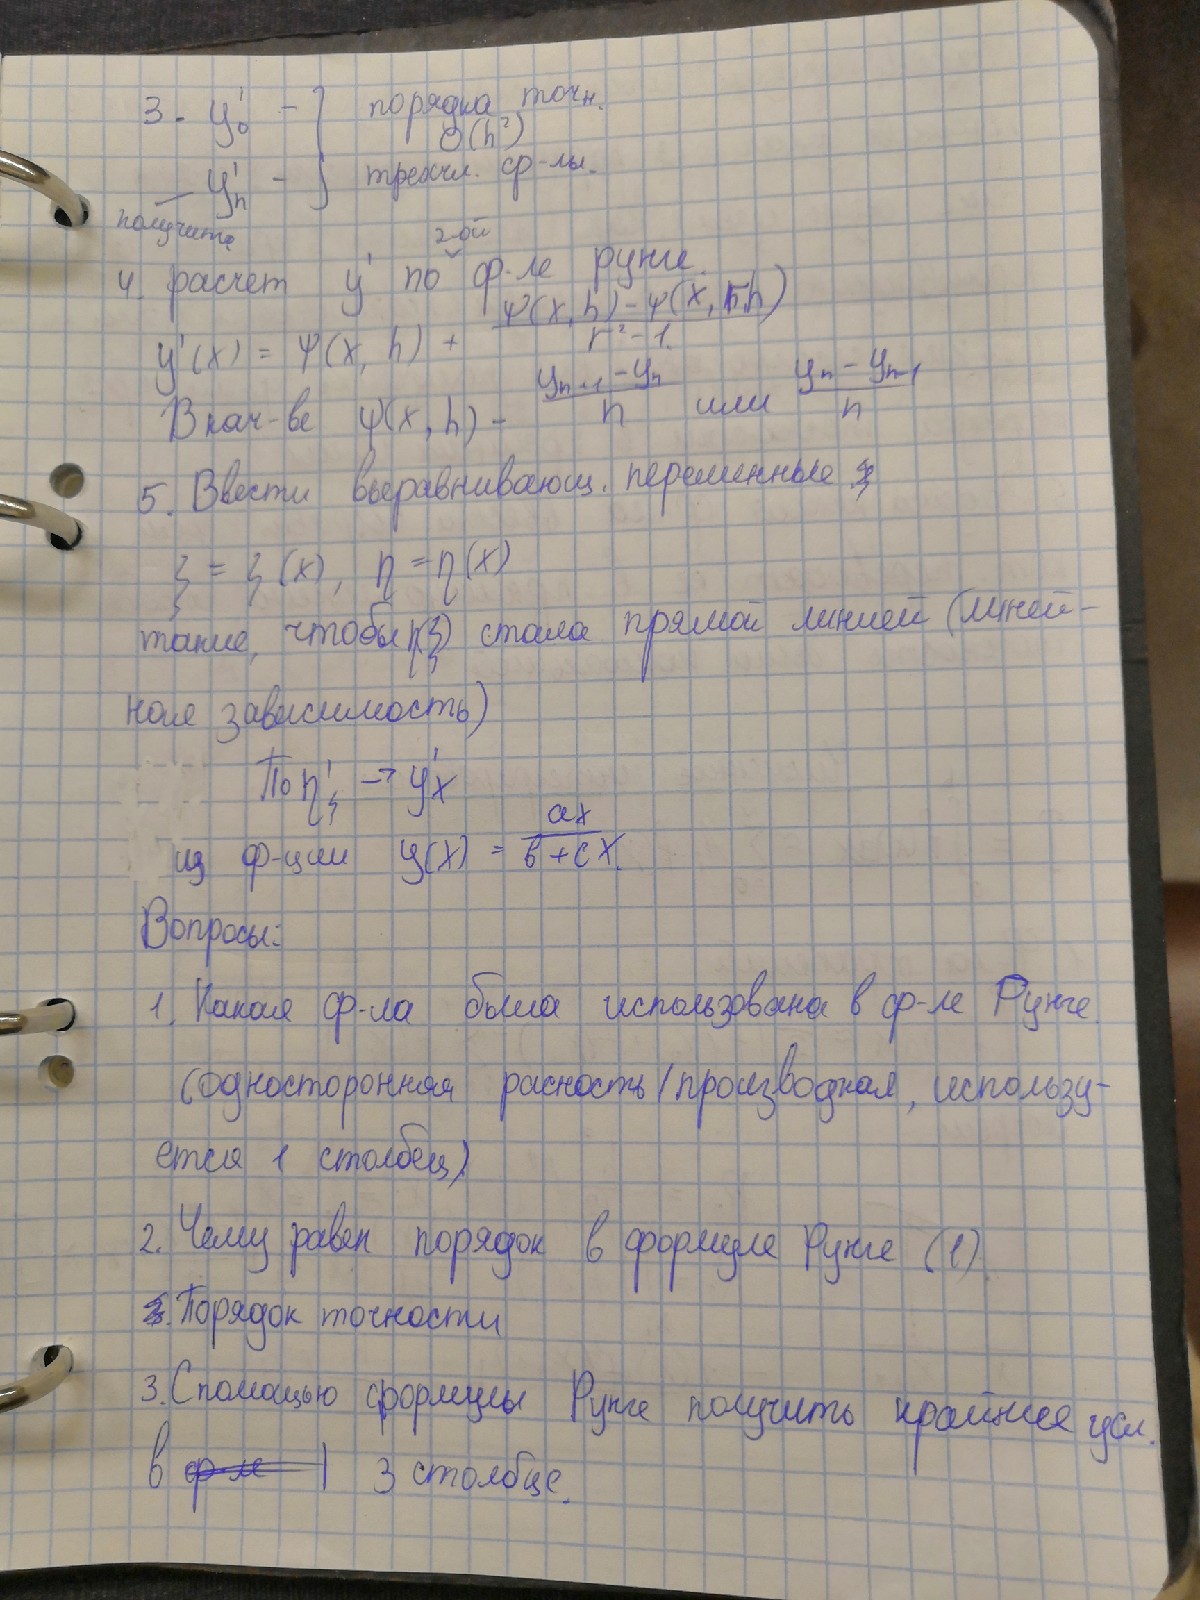 3. y'₀ - } порядка точн.
O(h²)
y'ₙ - } трехчл. ф-лы.
получите
2-ой
4. расчет y' по ф-ле рунге.
y'(x) = ψ(x, h) + (ψ(x, h) - ψ(x, rh)) / (r² - 1)
В кач-ве ψ(x, h) - (yₙ₊₁ - yₙ) / h или (yₙ - yₙ₋₁) / h
5. Ввести выравнивающ. переменные
ξ = ξ(x), η = η(x)
такие, чтобы η(ξ) стала прямой линией (линей-
ная зависимость)
По η'ξ → y'x
из ф-ции y(x) = ax / (b + cx)
Вопросы:
1. Какая ф-ла была использована в ф-ле Рунге.
(односторонняя расность/производная, использу-
ется 1 столбец)
2. Чему равен порядок в формуле Рунге (1).
Порядок точности
3. С помощью формулы Рунге получить крайнее усл.
в ф-ле 3 столбце.